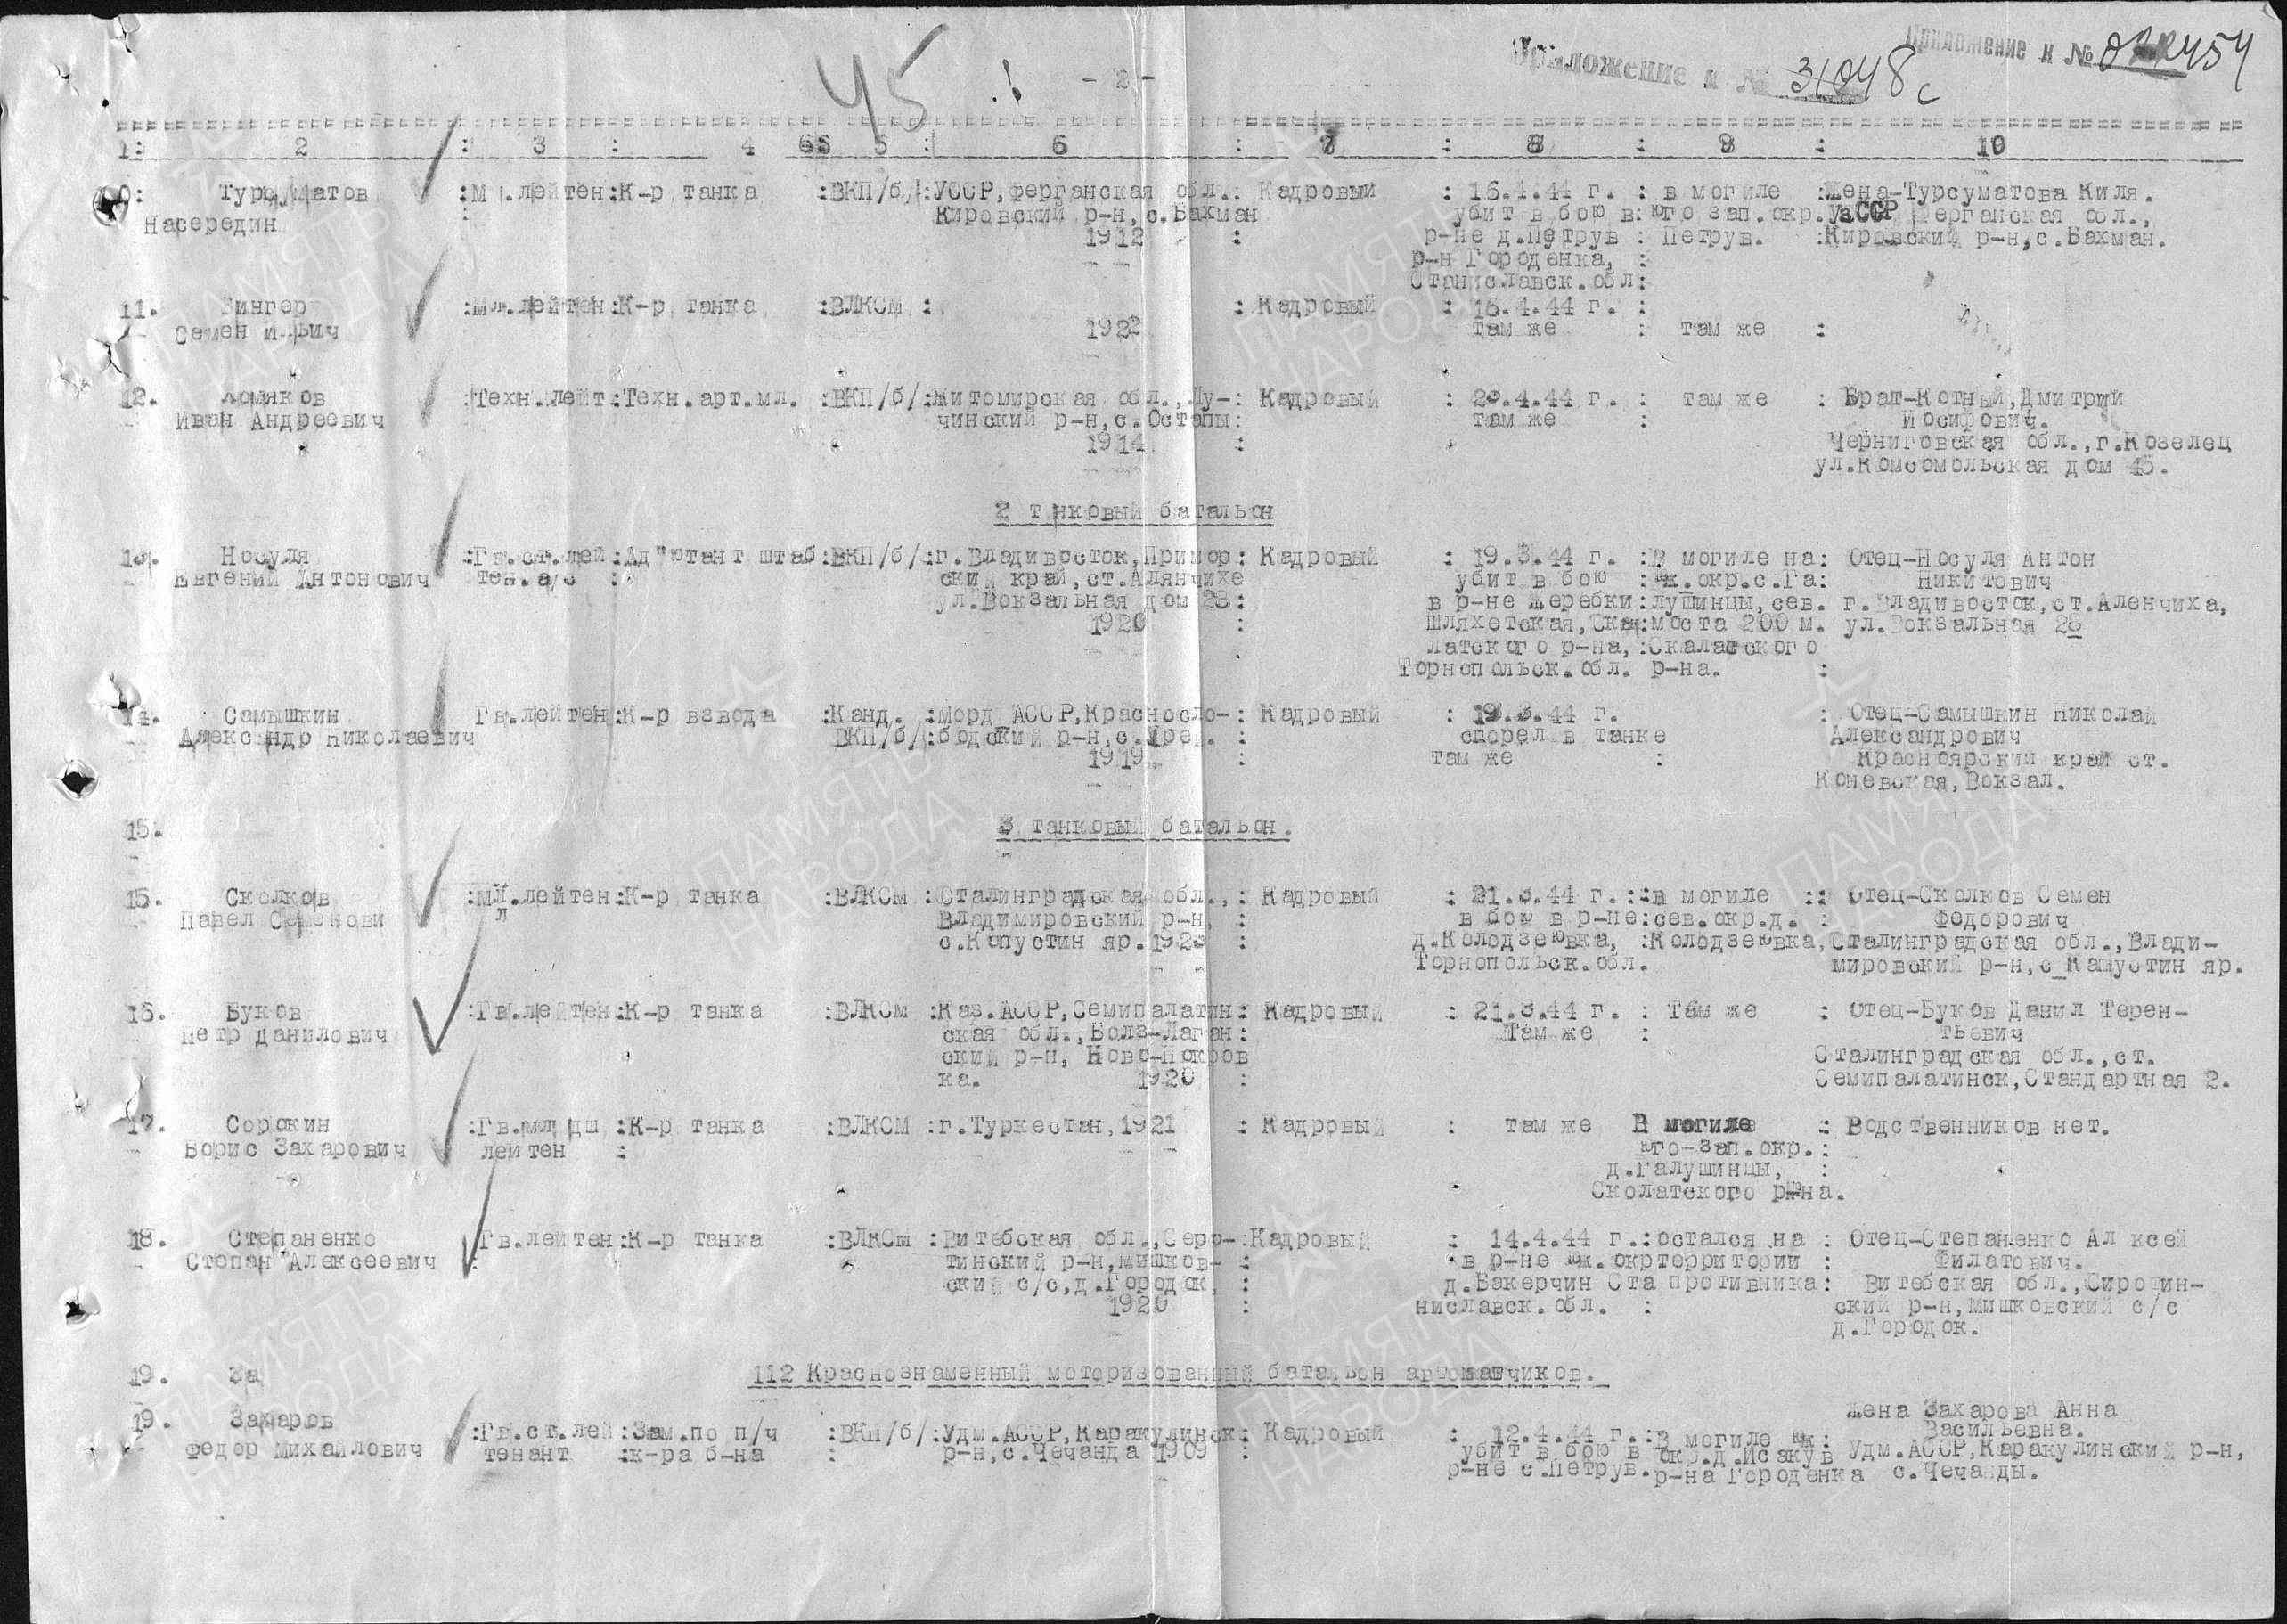 45
- 2 -
Приложение к № 31048с
Приложение к №
1: 2 : 3 : 4 5 : 6 : 7 : 8 : 9 : 10
Турсуматов : М .лейтен:К-р танка :ВКП/б/:УССР,Ферганская обл.: Кадровый : 16.4.44 г. : в могиле :Жена-Турсуматова Киля.
Насередин : Кировский р-н,с.Вахман убит в бою в:юго зап.окр.УзССР Ферганская обл.,
1912 : р-не д.Петрув : Петрув. :Кировский р-н,с.Вахман.
р-н Городенка, :
Станиславск.обл:
11. Зингер :Мл.лейтен:К-р танка :ВЛКСМ : : Кадровый : 16.4.44 г. :
Семен Ильич 1922 там же : там же :
12. Хомяков :Техн.лейт:Техн.арт.мл. :ВКП/б/:Житомирская обл.,Лу-: Кадровый : 4.44 г. : там же : Брат-Котный,Дмитрий
Иван Андреевич чинский р-н,с.Остапы: там же : Иосифович.
1914 : Черниговская обл.,г.Козелец
ул.Комсомольская дом 45.
2 т нковый батальон
13. Носуля :Гв.ст.лей:Ад"ютант штаб:ВКП/б/:г.Владивосток,Примор: Кадровый : 19.3.44 г. :В могиле на: Отец-Носуля Антон
Евгений Антонович тен.а/с : ский край,ст.Алянчихе убит в бою :юж.окр.с.Га: Никитович
ул.Вокзальная дом 28: в р-не Жеребки:лушинцы,сев. г.Владивосток,ст.Аленчиха,
1920 : Шляхетская,Ска:моста 200 м. ул.Вокзальная 28
латского р-на,:Скалатского
Торнопольск.обл. р-на. :
14. Самышкин Гв.лейтен:К-р взвода :Канд. :Морд АССР,Красносло-: Кадровый : 19.3.44 г. : Отец-Самышкин Николай
Александр Николаевич ВКП/б/:бодский р-н,с. : сгорел в танке Александрович
1919 : там же : Красноярский край ст.
Коневская,Вокзал.
15. 3 танковый батальон.
15. Сколков :мл.лейтен:К-р танка :ВЛКСМ :Сталинградская обл.,: Кадровый : 21.3.44 г.::в могиле :: Отец-Сколков Семен
Павел Семенови Владимировский р-н, : в бою в р-не:сев.окр.д. : Федорович
с.Капустин яр.1923 : д.Колодзеювка, :Колодзеювка,Сталинградская обл.,Влади-
Торнопольск.обл. мировский р-н,с Капустин яр.
16. Буков :Гв.лейтен:К-р танка :ВЛКСМ :Каз.АССР,Семипалатин: Кадровый : 21.3.44 г. : Там же : Отец-Буков Данил Терен-
Петр Данилович ская обл.,Волз-Лаган: Там же : тьевич
ский р-н, Ново-Покров Сталинградская обл.,ст.
ка. 1920 : Семипалатинск,Стандартная 2.
17. Сорокин :Гв.мл дш :К-р танка :ВЛКСМ :г.Туркестан,1921 : Кадровый : там же В могиле : Водственников нет.
Борис Захарович лейтен : юго-зап.окр.:
д.Галушинцы, :
Сколатского р-на.
18. Степаненко Гв.лейтен:К-р танка :ВЛКСм :Витебская обл.,Серо-:Кадровый : 14.4.44 г.:остался на : Отец-Степаненко Ал ксей
Степан Алексеевич : тинский р-н,мишков- : в р-не юж.окртерритории : Филатович.
ский с/с,д.Городок, : д.Вакерчин Ста противника: Витебская обл.,Сиротин-
1920 : ниславск.обл. : ский р-н,мишковский с/с
д.Городок.
19. За 112 Краснознаменный моторизованный батальон автоматчиков.
19. Захаров :Гв.ст.лей:Зам.по п/ч :ВКП/б/:Удм.АССР,Каракулинск: Кадровый : 12.4.44 г.:В могиле юж: Жена Захарова Анна
Федор Михайлович тенант :к-ра б-на : р-н,с.Чечанда 1909 : убит в бою в окр.д.Исакув Васильевна.
р-не с.Петрув.р-на Городенка Удм.АССР,Каракулинский р-н,
с.Чечанды.
ПАМЯТЬ НАРОДА
ПАМЯТЬ НАРОДА
ПАМЯТЬ НАРОДА
ПАМЯТЬ НАРОДА
ПАМЯТЬ НАРОДА
ПАМЯТЬ НАРОДА